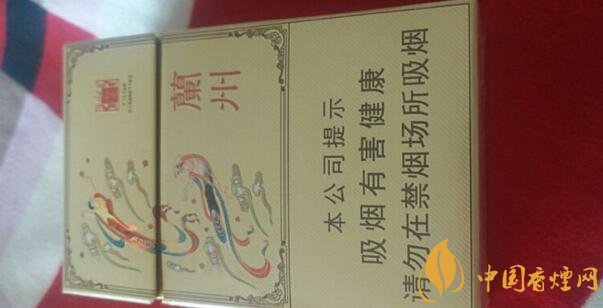 蘭州
本公司提示
吸烟有害健康
请勿在禁烟场所吸烟
中国香烟网